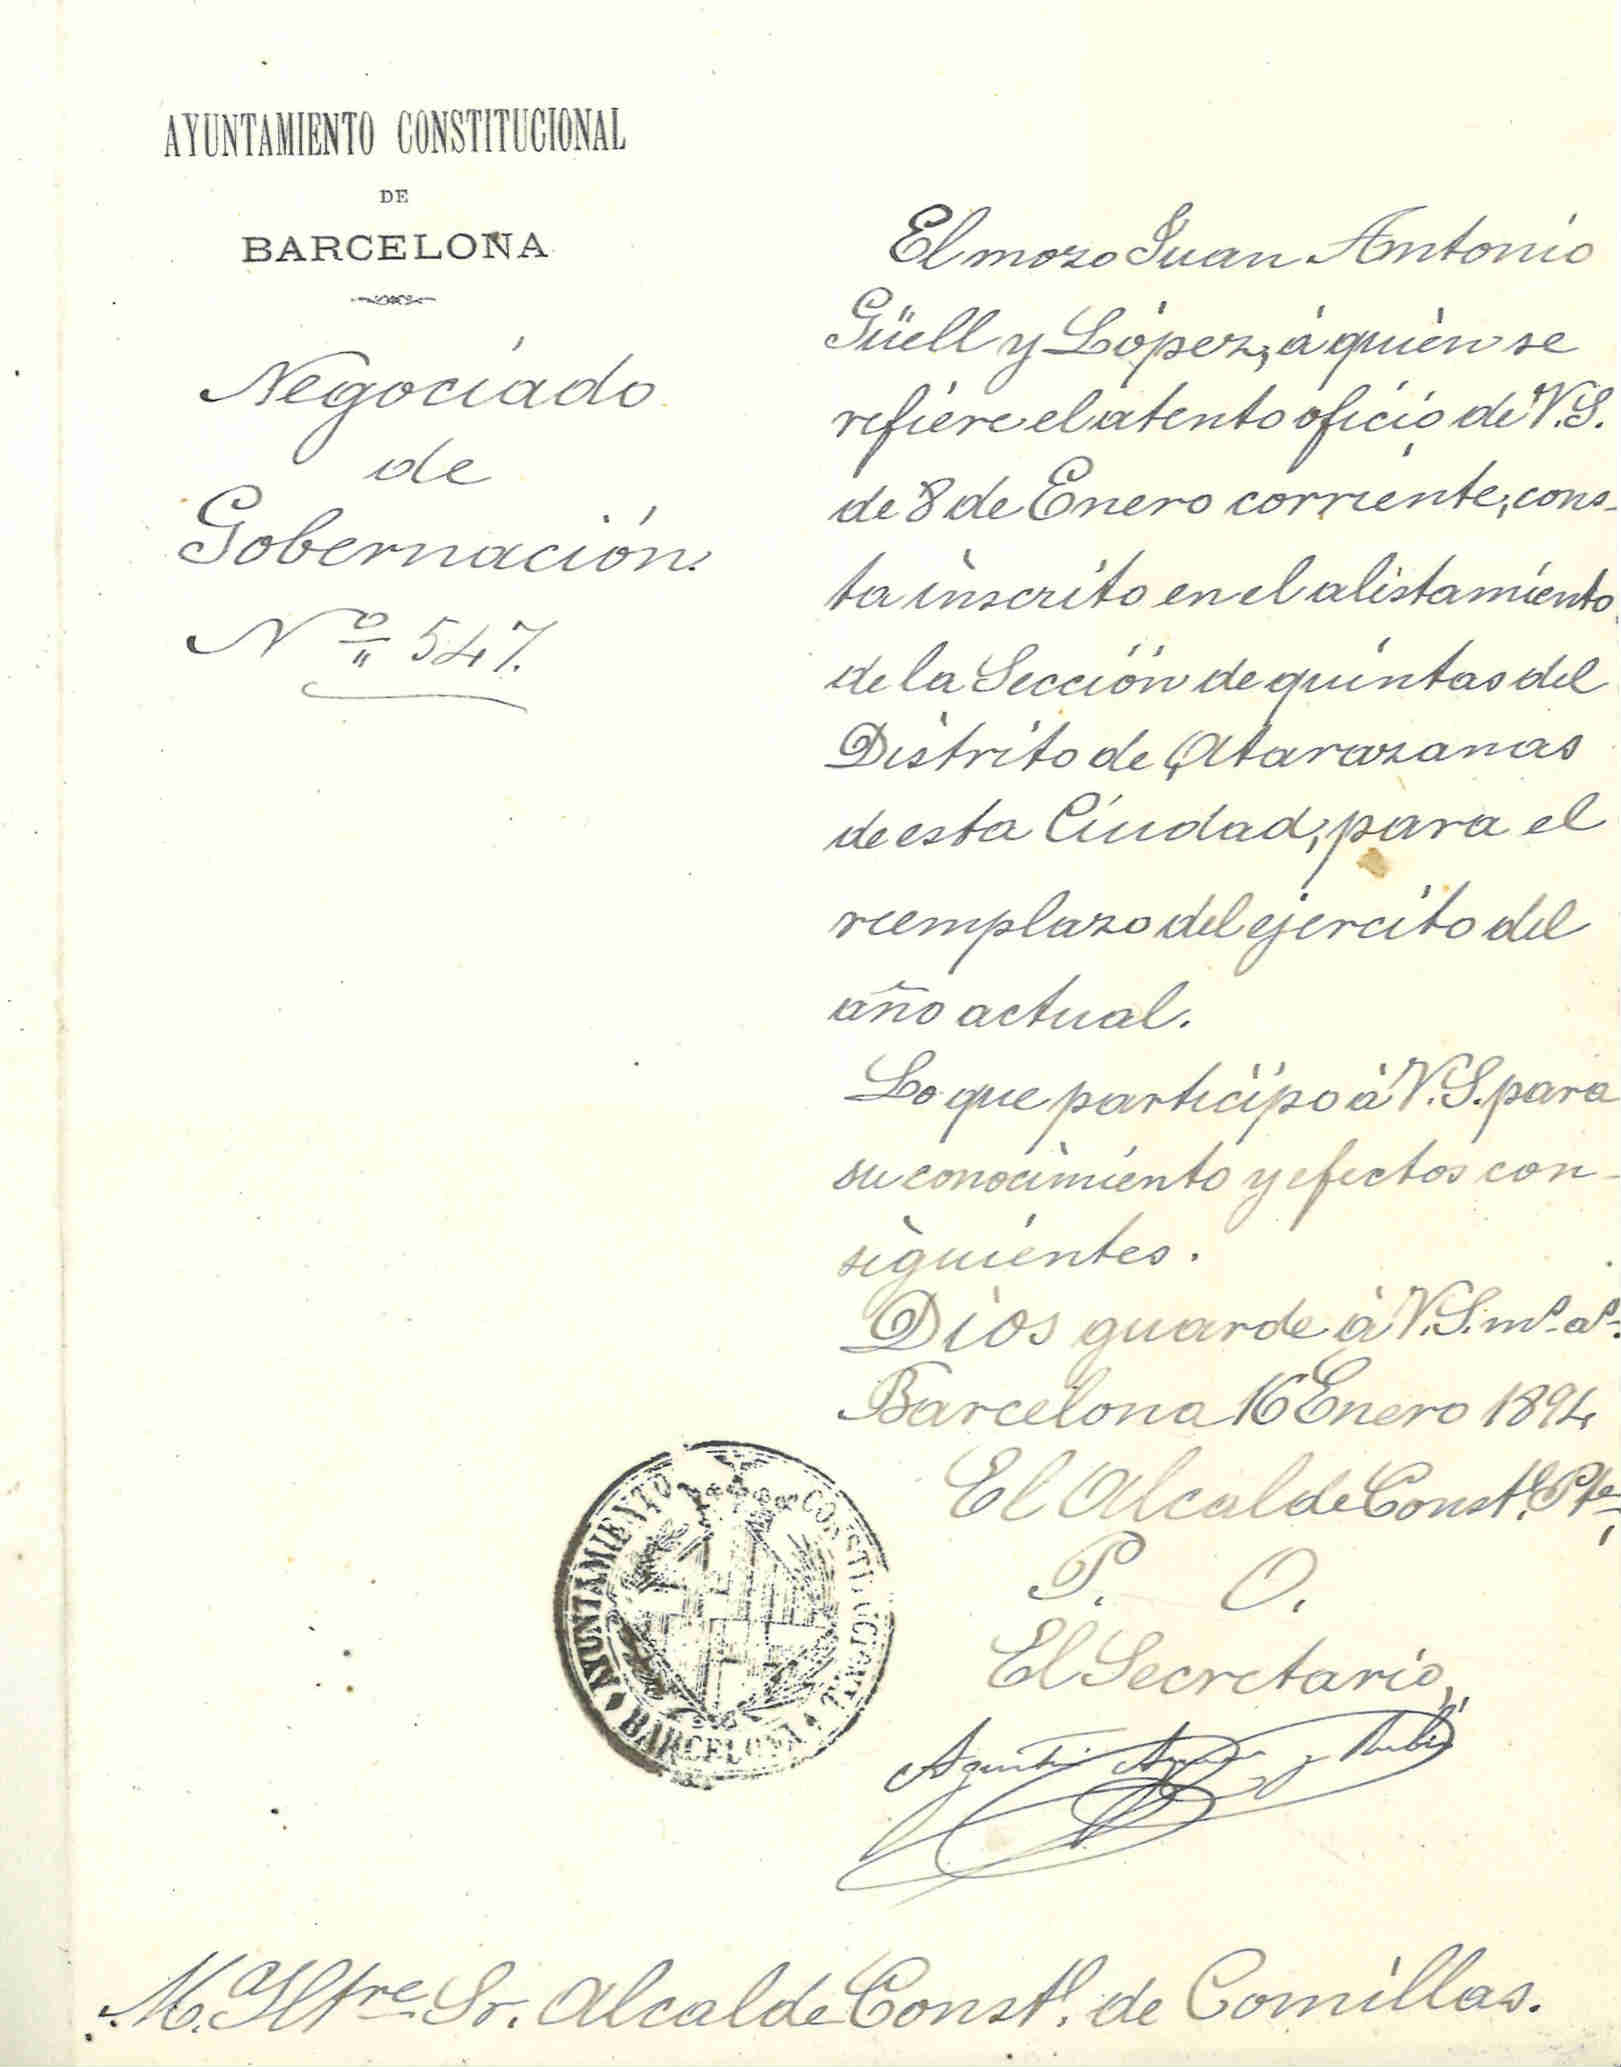 AYUNTAMIENTO CONSTITUCIONAL
DE
BARCELONA
Negociado
de
Gobernación.
Nº 547.
El mozo Juan Antonio
Güell y López, á quien se
refiere el atento oficio de V.S.
de 8 de Enero corriente, cons-
ta inscrito en el alistamiento
de la Sección de quintas del
Distrito de Atarazanas
de esta Ciudad, para el
reemplazo del ejercito del
año actual.
Lo que participo á V.S. para
su conocimiento y efectos con-
siguientes.
Dios guarde á V.S. mˢ. aˢ.
Barcelona 16 Enero 1894
El Alcalde Constˡ. Pte,
P. O.
El Secretario,
Agustín y Rubio
AYUNTAMIENTO CONSTITUCIONAL
BARCELONA
M. Iltre Sr. Alcalde Constˡ. de Comillas.